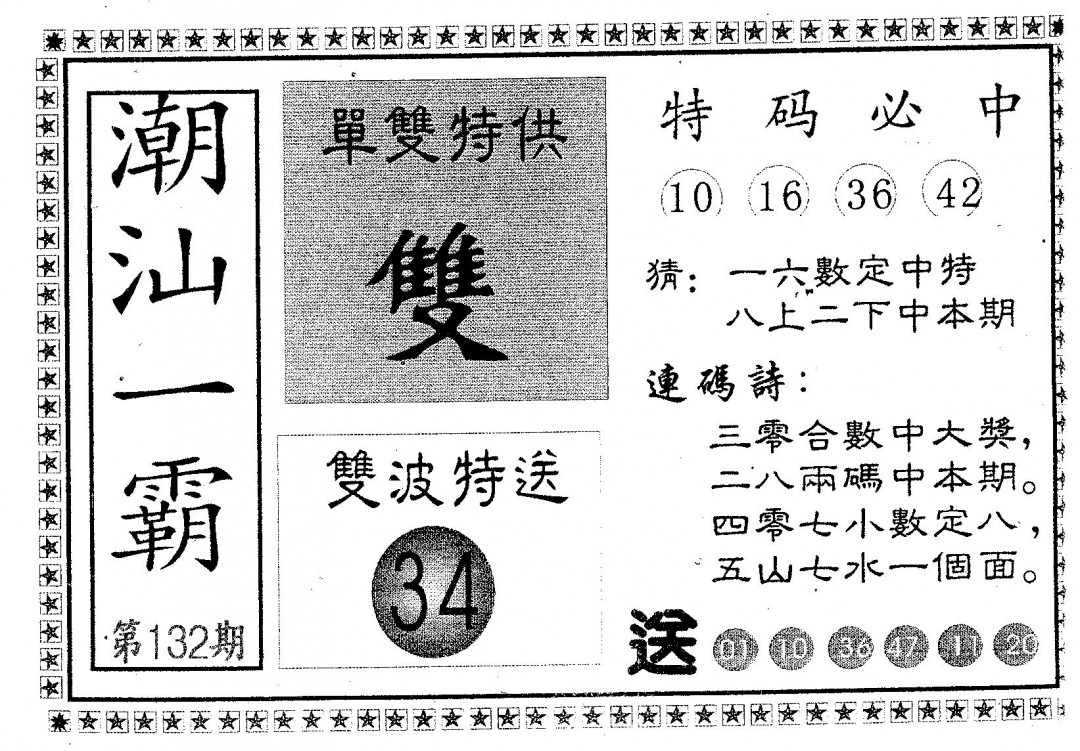 潮汕一霸
第132期
單雙特供
雙
雙波特送
34
特码必中
10 16 36 42
猜：一六數定中特
八上二下中本期
連碼詩：
三零合數中大獎，
二八兩碼中本期。
四零七小數定八，
五山七水一個面。
送 01 10 36 47 11 20